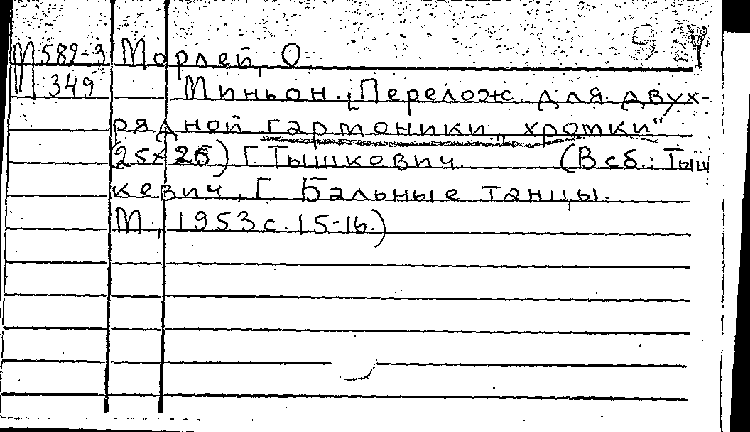 М 582-9 Морлей, О.
М 349 Миньон. [Перелож. для двух-
рядной гармоники „хромки"
25х25) Г. Тышкевич. (В сб.: Тыш
кевич, Г. Бальные танцы.
М., 1953 с. 15-16.)